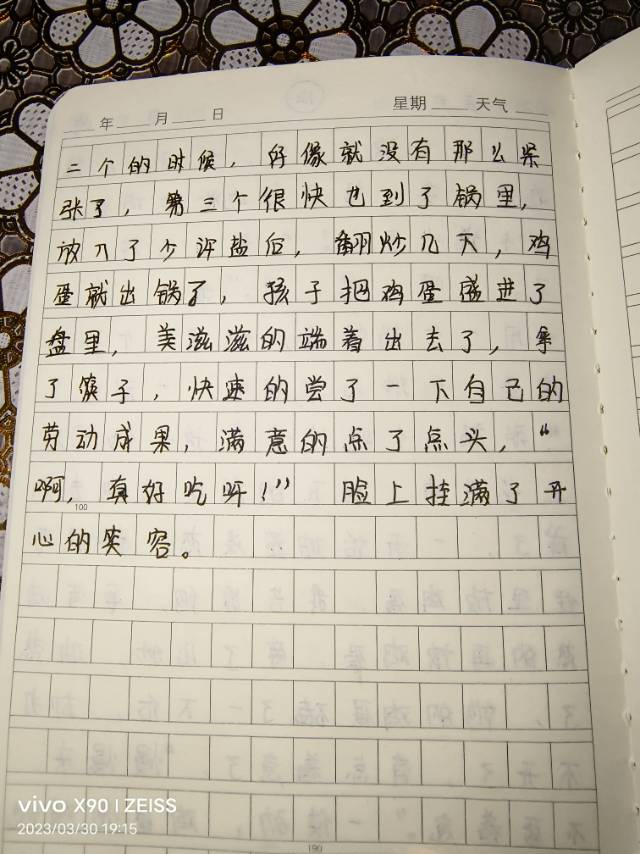 年 月 日 星期 天气
二个的时候，好像就没有那么紧
张了，第三个很快也到了锅里，
放入了少许盐后，翻炒几大，鸡
蛋就出锅了，孩子把鸡蛋盛进了
盘里，美滋滋的端着出去了，拿
了筷子，快速的尝了一下自己的
劳动成果，满意的点了点头，“
啊，真好吃呀！” 脸上挂满了开
100
心的笑容。
vivo X90 | ZEISS
2023/03/30 19:15
190